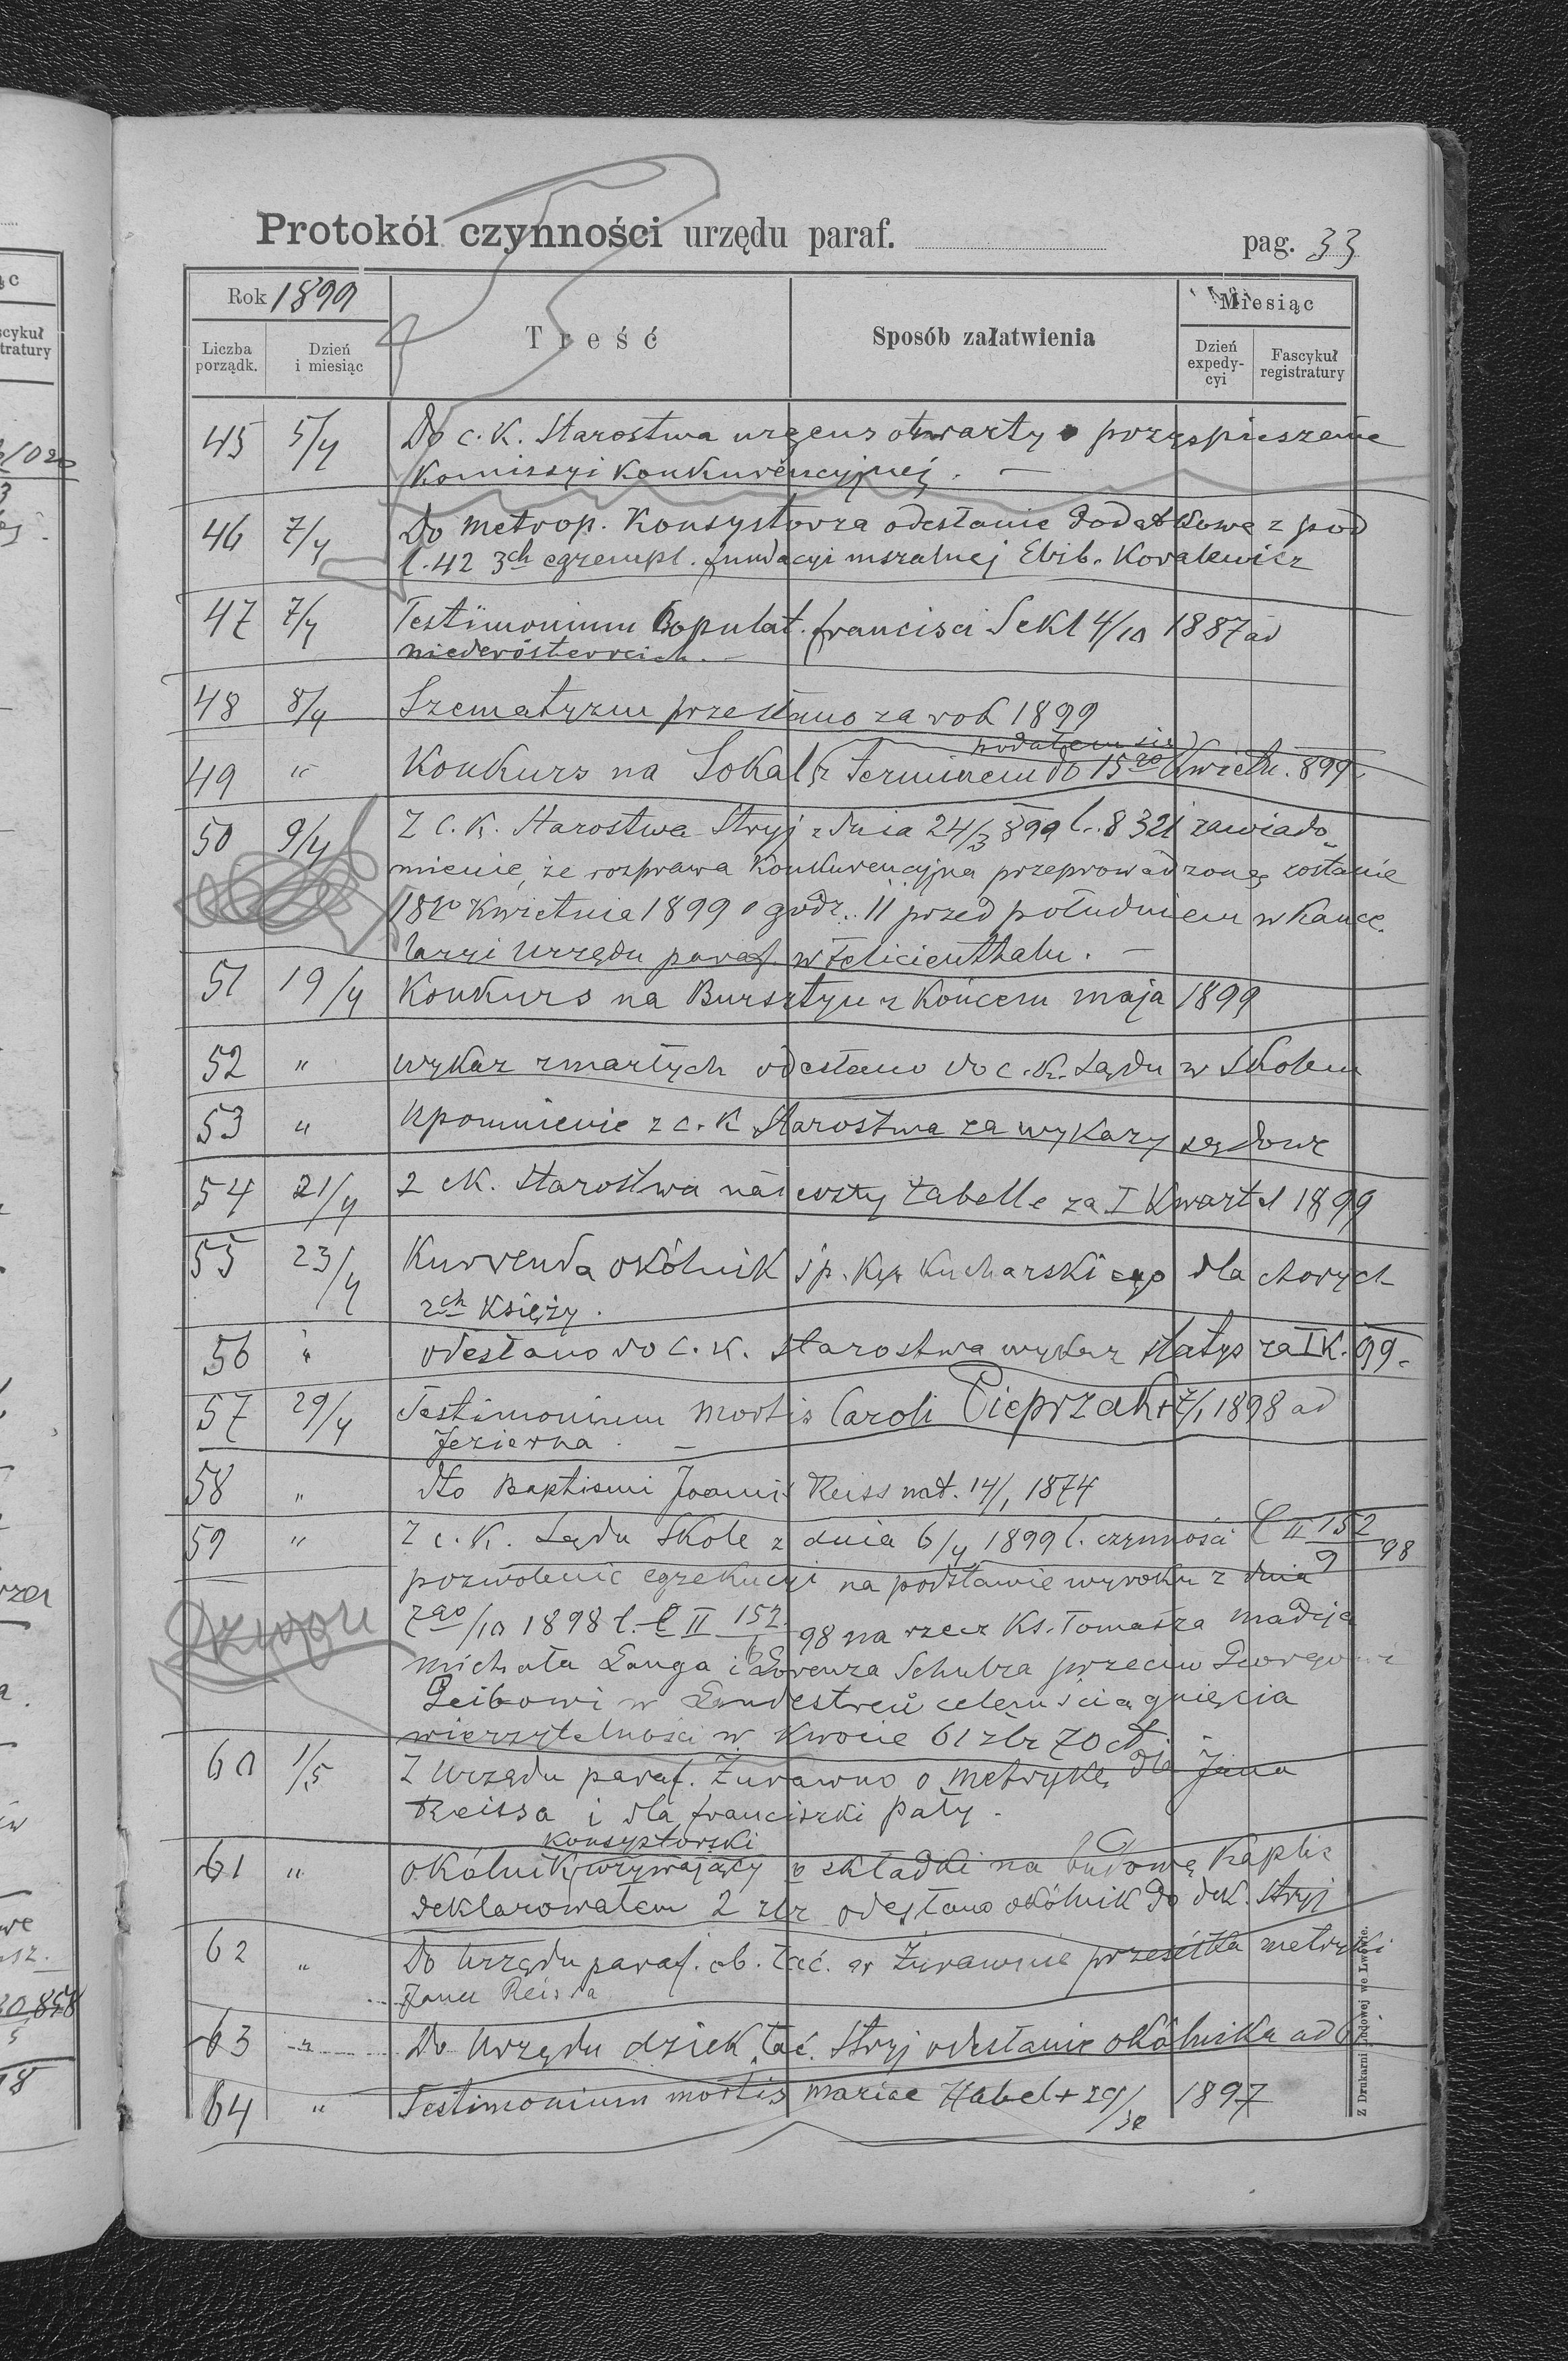 Protokół czynności urzędu paraf. pag. 33
Rok 1899
Miesiąc
Liczba porządk.
Dzień i miesiąc
Treść
Sposób załatwienia
Dzień expedycyi
Fascykuł registratury
45 5/4 Do c. k. Starostwa urgens otwarty o przyspieszenie
Komissyi Konkurencyjnej. —
46 7/4 Do Metrop. Konsystorza odesłanie dodatkowe z pod
l. 42 3ch egzempl. fundacyi mszalnej Kovalewicz
47 7/4 Testimonium Copulat. Francisci Sekl 4/10 1887 ad
Niederösterreich. —
48 8/4 Szematyzm przesłano za rok 1899
podałem się
49 " Konkurs na Sokal z terminem do 15go Kwietn. 899.
50 9/4 Z c. k. Starostwa Stryj z dnia 24/3 899 l. 8321 zawiado
mienie, że rozprawa Konkurencyjna przeprowadzoną zostanie
18go Kwietnia 1899 o godz. 11 przed południem w Kance.
laryi Urzędu paraf. w Felicienthalu. —
51 19/4 Konkurs na Bursztyn z Końcem maja 1899
52 " Wykaz zmarłych odesłano do c. k. Sądu w Skolem
53 " Upomnienie z c. k. Starostwa za wykazy sądowe
54 21/4 Z c. k. Starostwa tabelle za I Kwartał 1899
55 23/4 Kurrenda okólnik śp. Kucharskiego dla chorych
2ch Księży.
56 " odesłano do c. k. Starostwa wykaz statys za I K. 99.
57 29/4 Testimonium Mortis Caroli Pieprzak + 7/1 1898 ad
Jezierna. —
58 " dto Baptismi Joannis Reiss nat. 14/1 1874
59 " Z c. k. Sądu Skole z dnia 6/4 1899 l. czynności C II 152/9 98
pozwolenie egzekucyi na podstawie wyroku z dnia
7go/10 1898 l. C II 152/6 98 na rzecz Ks. Tomasza Madeja
Michała Langa i Lorenza Schulza przeciw Georgowi
Leibowi w Landestreu celem ściągnięcia
wierzytelności w Kwocie 61 złr 70 ct.
60 1/5 Z Urzędu paraf. Żurawno o metrykę dla Jana
Reissa i dla Franciszki Pały.
konsystorski
61 " okólnik wzywający o składki na budowę Kaplic
deklarowałem 2 złr odesłano okólnik do dek. Stryj
62 " Do Urzędu paraf. ob. łać. w Żurawnie przesyłka metryki
Jana Reissa
63 " Do Urzędu dziek. łać. Stryj odesłanie okólnika ad 61
64 " Testimonium mortis Mariae Habel + 29/12 1897
Z Drukarni Ludowej we Lwowie.